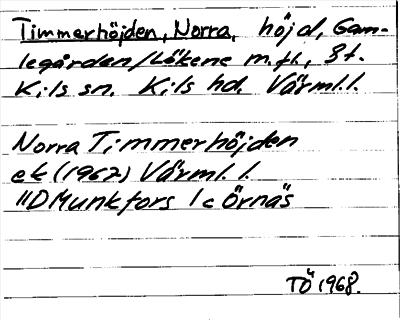 Timmerhöjden, Norra, höjd, Gam-
legården/Lökene m.fl., §t.
Kils sn. Kils hd. Värml.l.
Norra Timmerhöjden
ek (1962) Värml.l.
11D Munkfors 1c Örnäs
TÖ 1968.